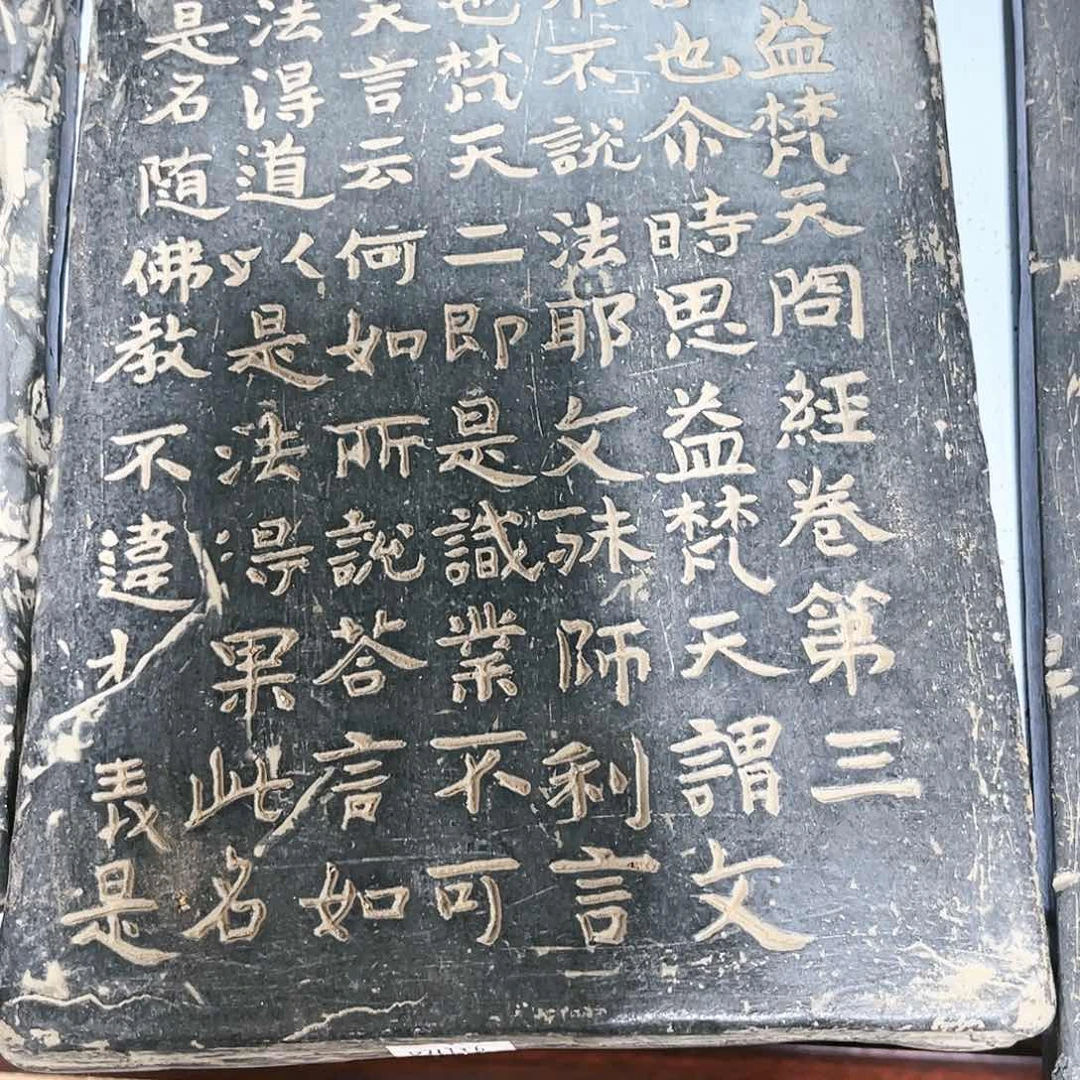 益梵天問經卷第三
也尒時思益梵天謂文
不說法耶文殊師利言
也梵天二即是識業不可
天言云何如所說荅言如
法得道人是法得果此名
是名随佛教不違義是